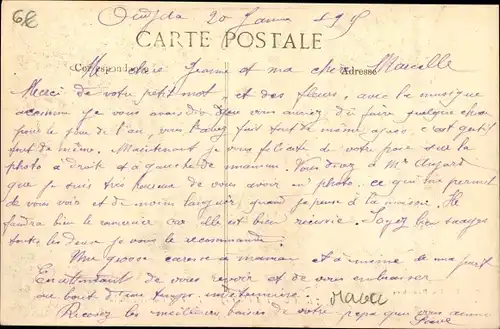 6€
Oudjda 20 Janvier 1915
CARTE POSTALE
Correspondance Adresse
Ma chère Jeanne et ma chère Marcelle
Merci de votre petit mot et des fleurs, avec la musique
comme je vous avais dit que vous auriez dû faire quelque chose
pour le jour de l'an, vous l'avez fait tout de même après c'est gentil
tout de même. Maintenant je vous félicite de votre pose sur la
photo à droite et à gauche de maman. Vous direz à Mr
que je suis très heureux de vous avoir en photo ce qui me permet
de vous voir et de moins languir quand je pense à la maison. Il
faudra bien le remercier car elle est bien réussie. Soyez bien sages
toutes les deux je vous le recommande.
Une grosse caresse à maman et à mémé de ma part
En attendant de vous revoir et de vous embrasser
au bout d'un temps indéterminé.
Maroc
Recevez les meilleurs baisers de votre papa qui vous aime